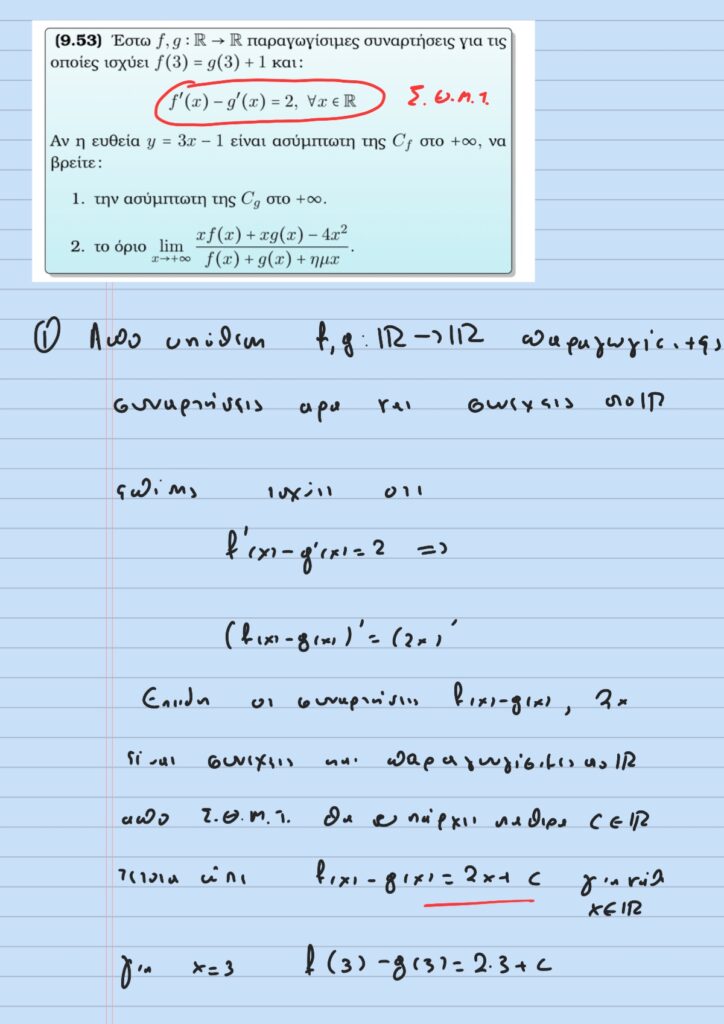 (9.53) Έστω f, g : ℝ → ℝ παραγωγίσιμες συναρτήσεις για τις
οποίες ισχύει f(3) = g(3) + 1 και:
f′(x) − g′(x) = 2, ∀x ∈ ℝ Σ.Θ.Μ.Τ.
Αν η ευθεία y = 3x − 1 είναι ασύμπτωτη της C_f στο +∞, να
βρείτε:
1. την ασύμπτωτη της C_g στο +∞.
2. το όριο lim_{x→+∞} (xf(x) + xg(x) − 4x²)/(f(x) + g(x) + ημx).
① Απο υπόθεση f, g : ℝ → ℝ παραγωγίσιμες
συναρτήσεις αρα και συνεχεις στο ℝ
επίσης ισχύει οτι
f′(x) − g′(x) = 2 =>
(f(x) − g(x))′ = (2x)′
Επειδη οι συναρτήσεις f(x) − g(x), 2x
είναι συνεχεις και παραγωγίσιμες στο ℝ
απο Σ.Θ.Μ.Τ. θα υπάρχει σταθερα c ∈ ℝ
τετοια ώστε f(x) − g(x) = 2x + c για καθε
x ∈ ℝ
για x = 3 f(3) − g(3) = 2·3 + c